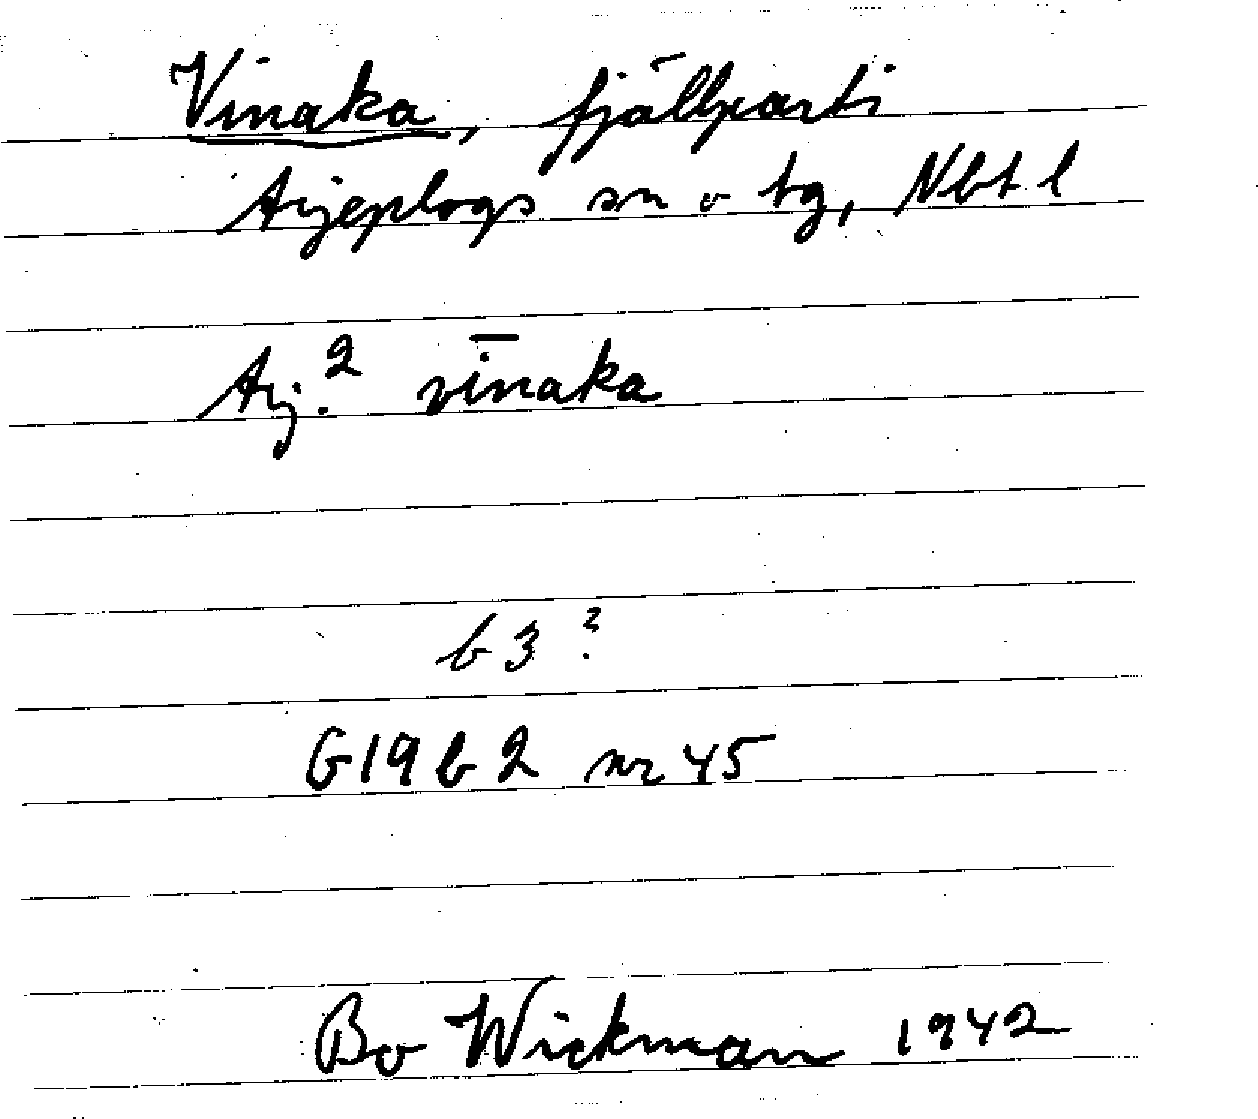 Vinaka, fjällparti
Arjeplogs sn o tg, Nbt l
Arj.2 vīnaka
b3?
G19b2 nr 45
Bo Wickman 1942